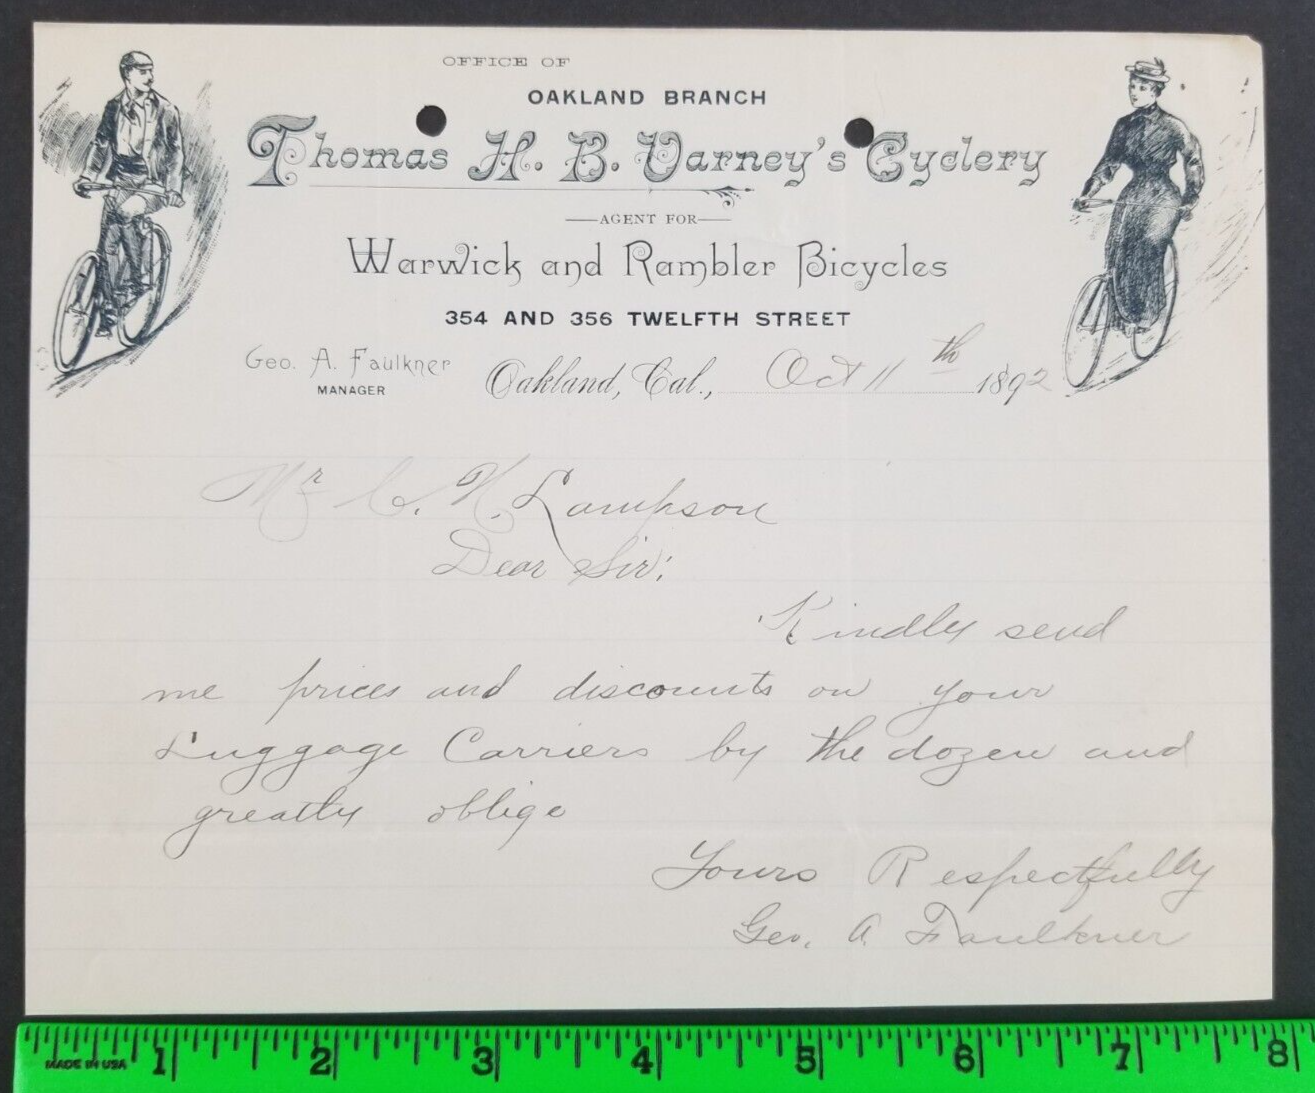 OFFICE OF
OAKLAND BRANCH
Thomas H. B. Varney's Cyclery
AGENT FOR
Warwick and Rambler Bicycles
354 AND 356 TWELFTH STREET
Geo. A. Faulkner
MANAGER
Oakland, Cal., Oct 11th 1892
Mr C. H. Lampson
Dear Sir:
Kindly send
me prices and discounts on your
Luggage Carriers by the dozen and
greatly oblige
Yours Respectfully
Geo. A. Faulkner
MADE IN USA 1 2 3 4 5 6 7 8